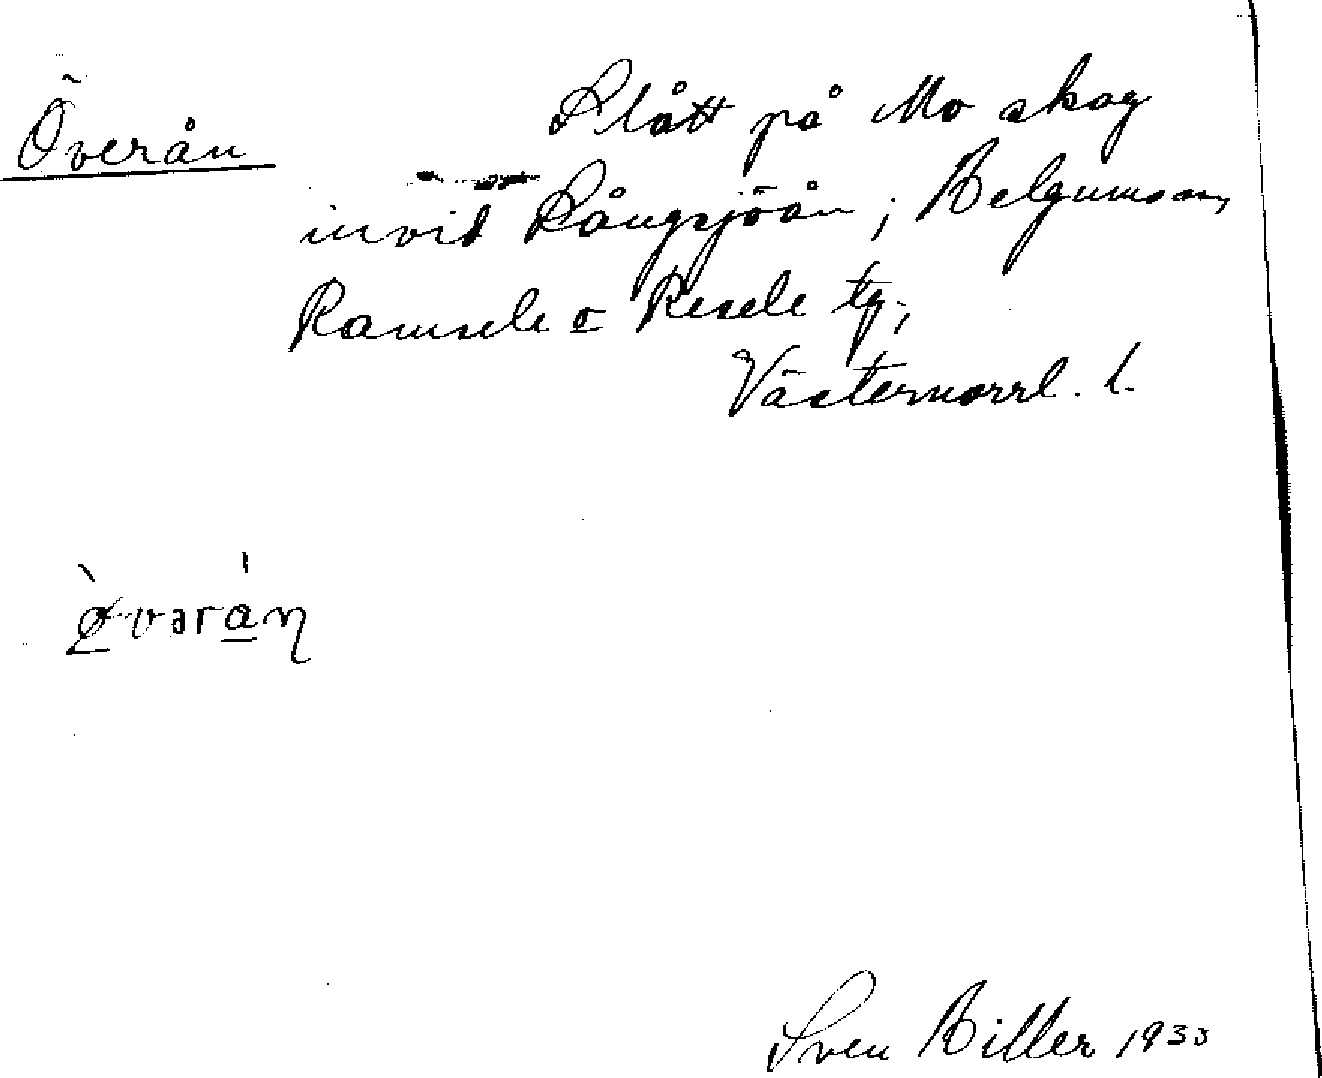 Överån Slått på Mo skog
invid Långsjöån,
Ramsele o Resele tg,
Västernorrl. l.
Sven Biller 1933